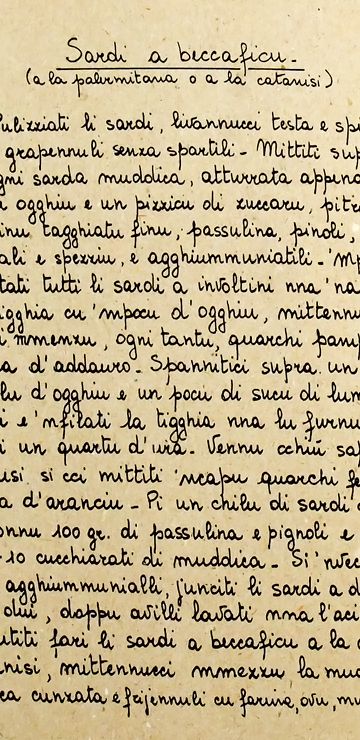 Sardi a beccaficu -
(a la palermitana o a la catanisi)
ulizziati li sardi, livannucci testa e spi
grapennuli senza spartili - Mittiti sup
gni sarda muddica, atturrata appena
i ogghiu e un pizzicu di zuccaru, pitr
inu tagghiatu finu, passulina, pinoli,
ali e spezziu, e agghiummuniatili - 'Mp
tati tutti li sardi a involtini nna 'na
igghia cu 'mpocu d'ogghiu, mittennu
i mmenzu, ogni tantu, quarchi pam
a d'addauro - Spannitici supra un
lu d'ogghiu e un pocu di sucu di lum
i e 'nfilati la tigghia nna lu furnu
i un quartu d'ura - Vennu cchiù sap
usi si cci mittiti 'ncapu quarchi fe
a d'aranciu - Pi un chilu di sardi
onnu 100 gr. di passulina e pignoli e
-10 cucchiarati di muddica - Si 'nvec
agghiummunialli, junciti li sardi a d
dui, doppu avilli lavati nna l'aci
utiti fari li sardi a beccaficu a la c
anisi, mittennucci mmezzu la mud
ca cunzata e frijennuli cu farina, ovu, mu